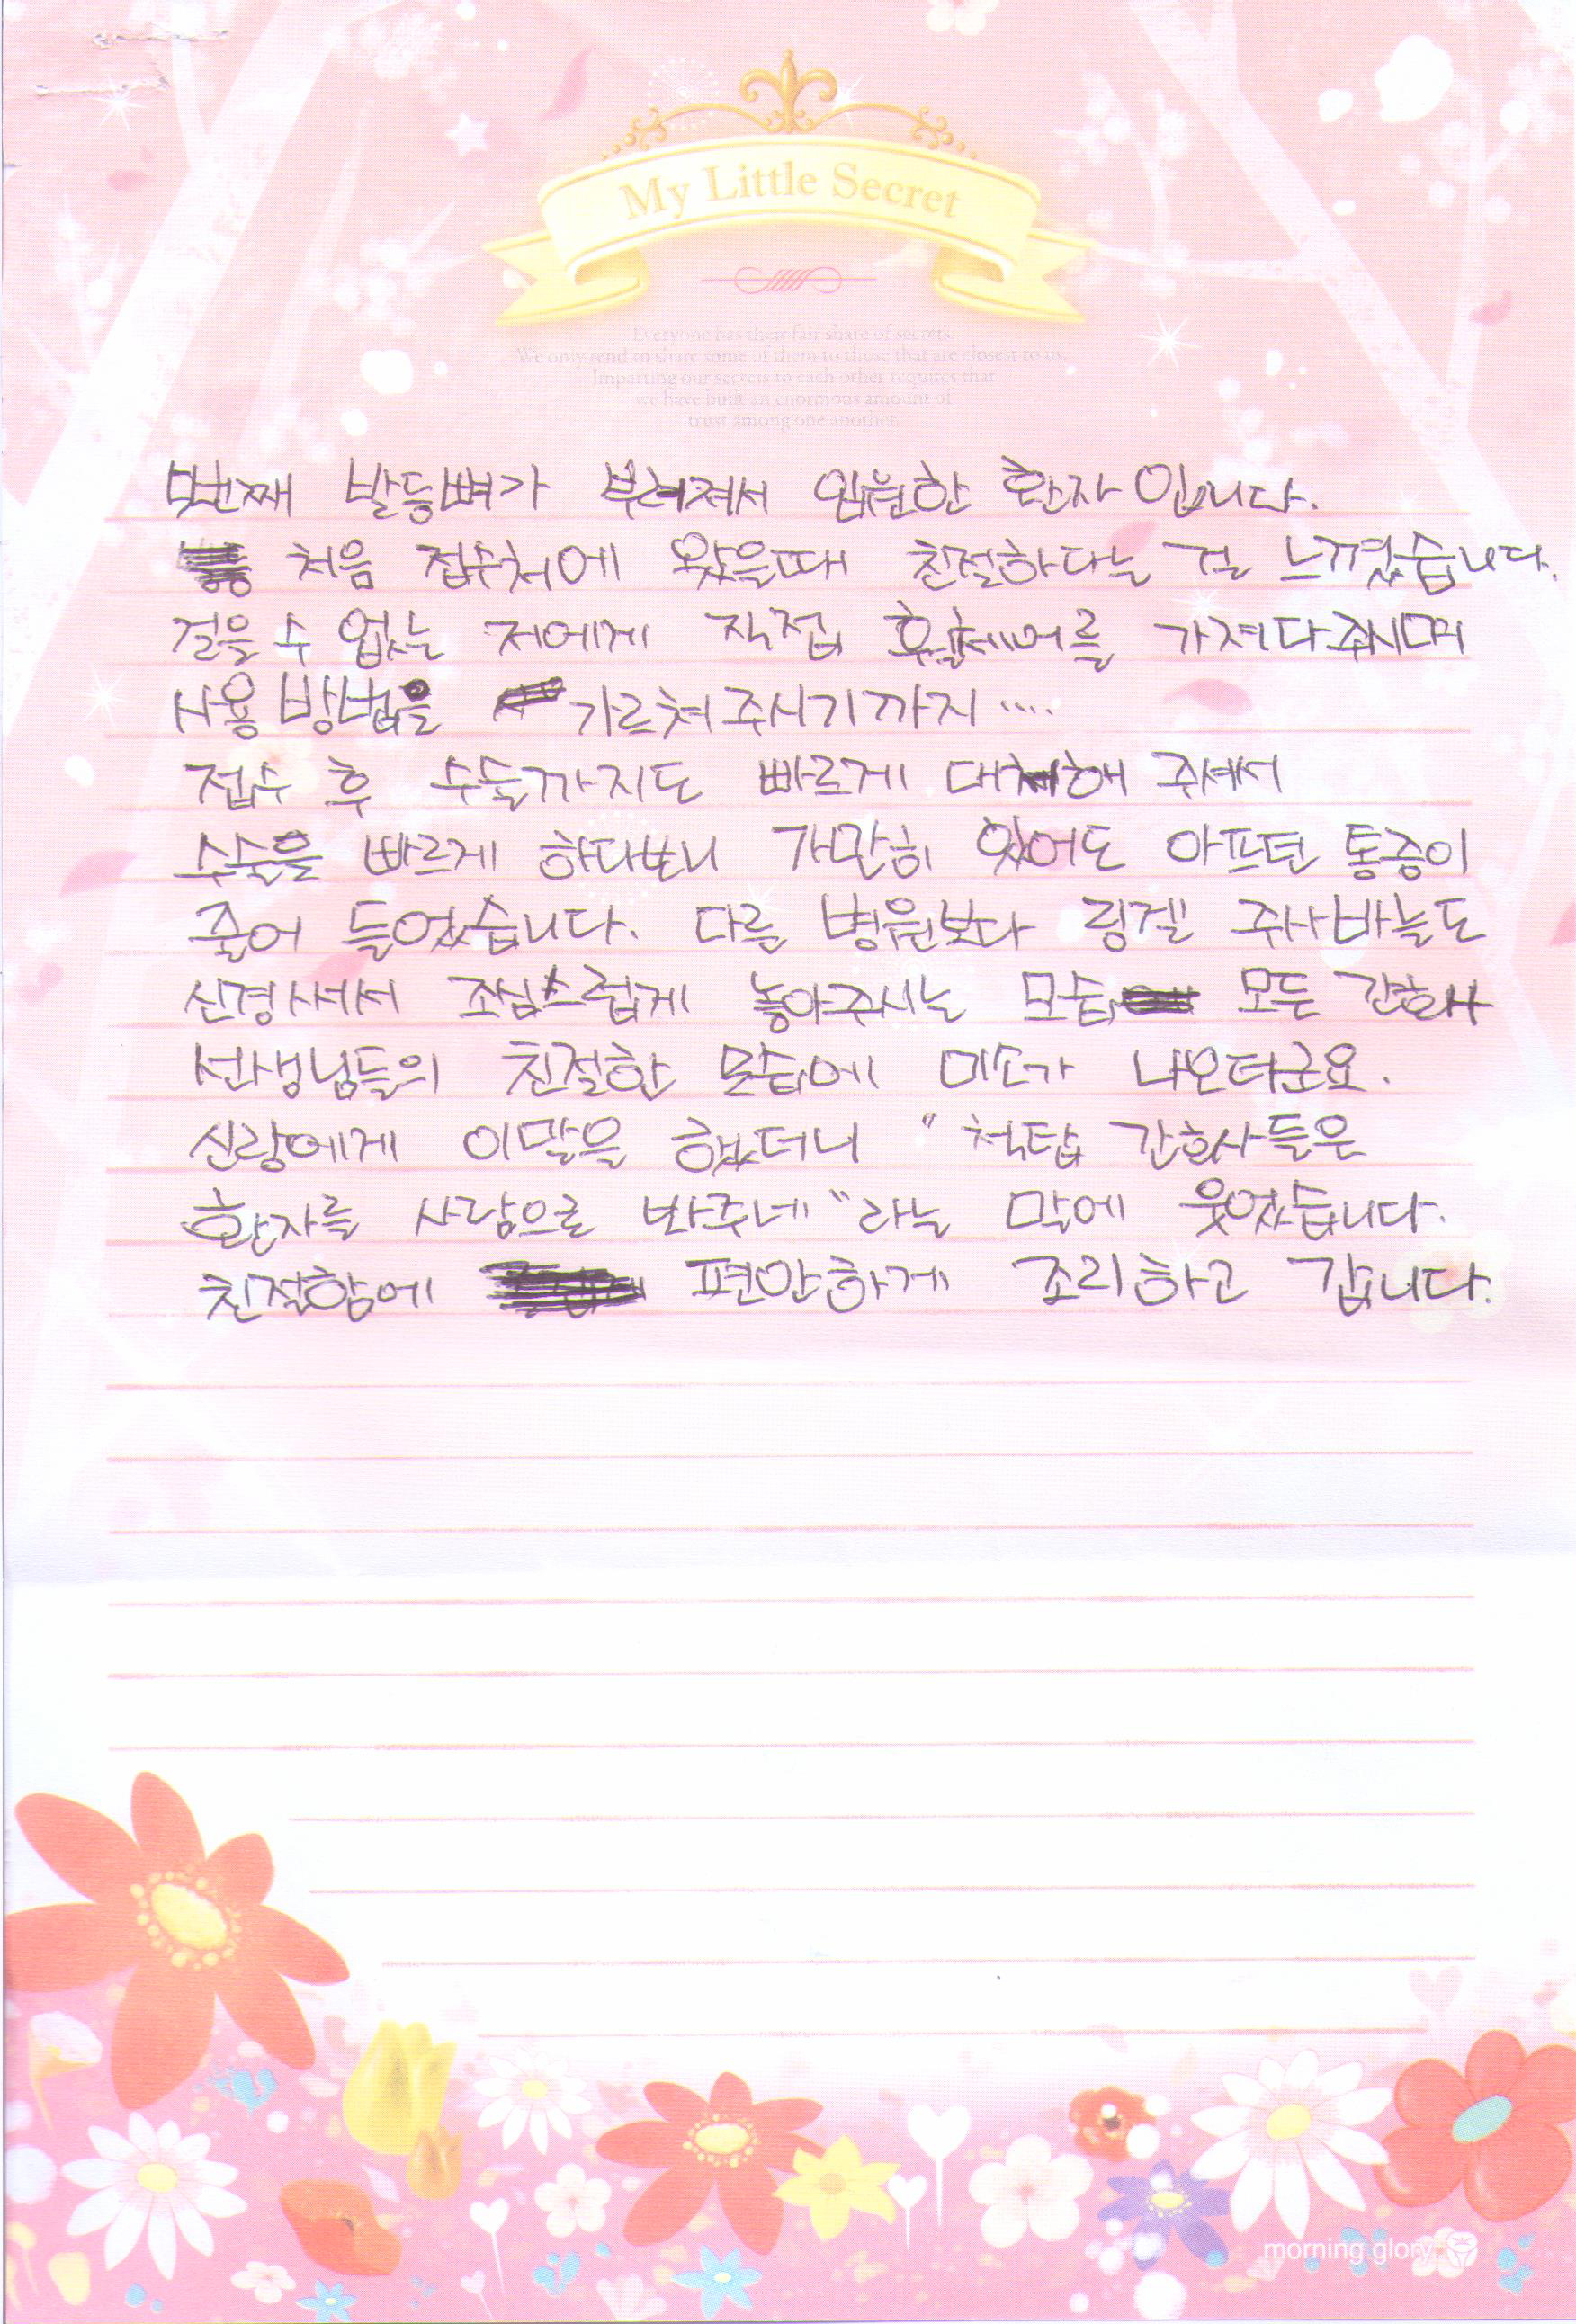 My Little Secret
Everyone has their fair share of secrets.
We only tend to share some of them to those that are closest to us.
Imparting our secrets to each other requires that
we have built an enormous amount of
trust among one another.
5번째 발등뼈가 부러져서 입원한 환자입니다.
처음 접수처에 왔을때 친절하다는 걸 느꼈습니다.
걸을 수 없는 저에게 직접 휠체어를 가져다주시며
사용방법을 가르쳐주시기까지....
접수 후 수술까지도 빠르게 대처해 주셔서
수술을 빠르게 하다보니 가만히 있어도 아프던 통증이
줄어 들었습니다. 다를 병원보다 링겔 주사바늘도
신경써서 조심스럽게 놓아주시는 모습 모든 간호사
선생님들의 친절한 모습에 미소가 나오더군요.
신랑에게 이말을 했더니 "척탑 간호사들은
환자를 사람으로 봐주네"라는 말에 웃었습니다.
친절함에 편안하게 조리하고 갑니다.
morning glory